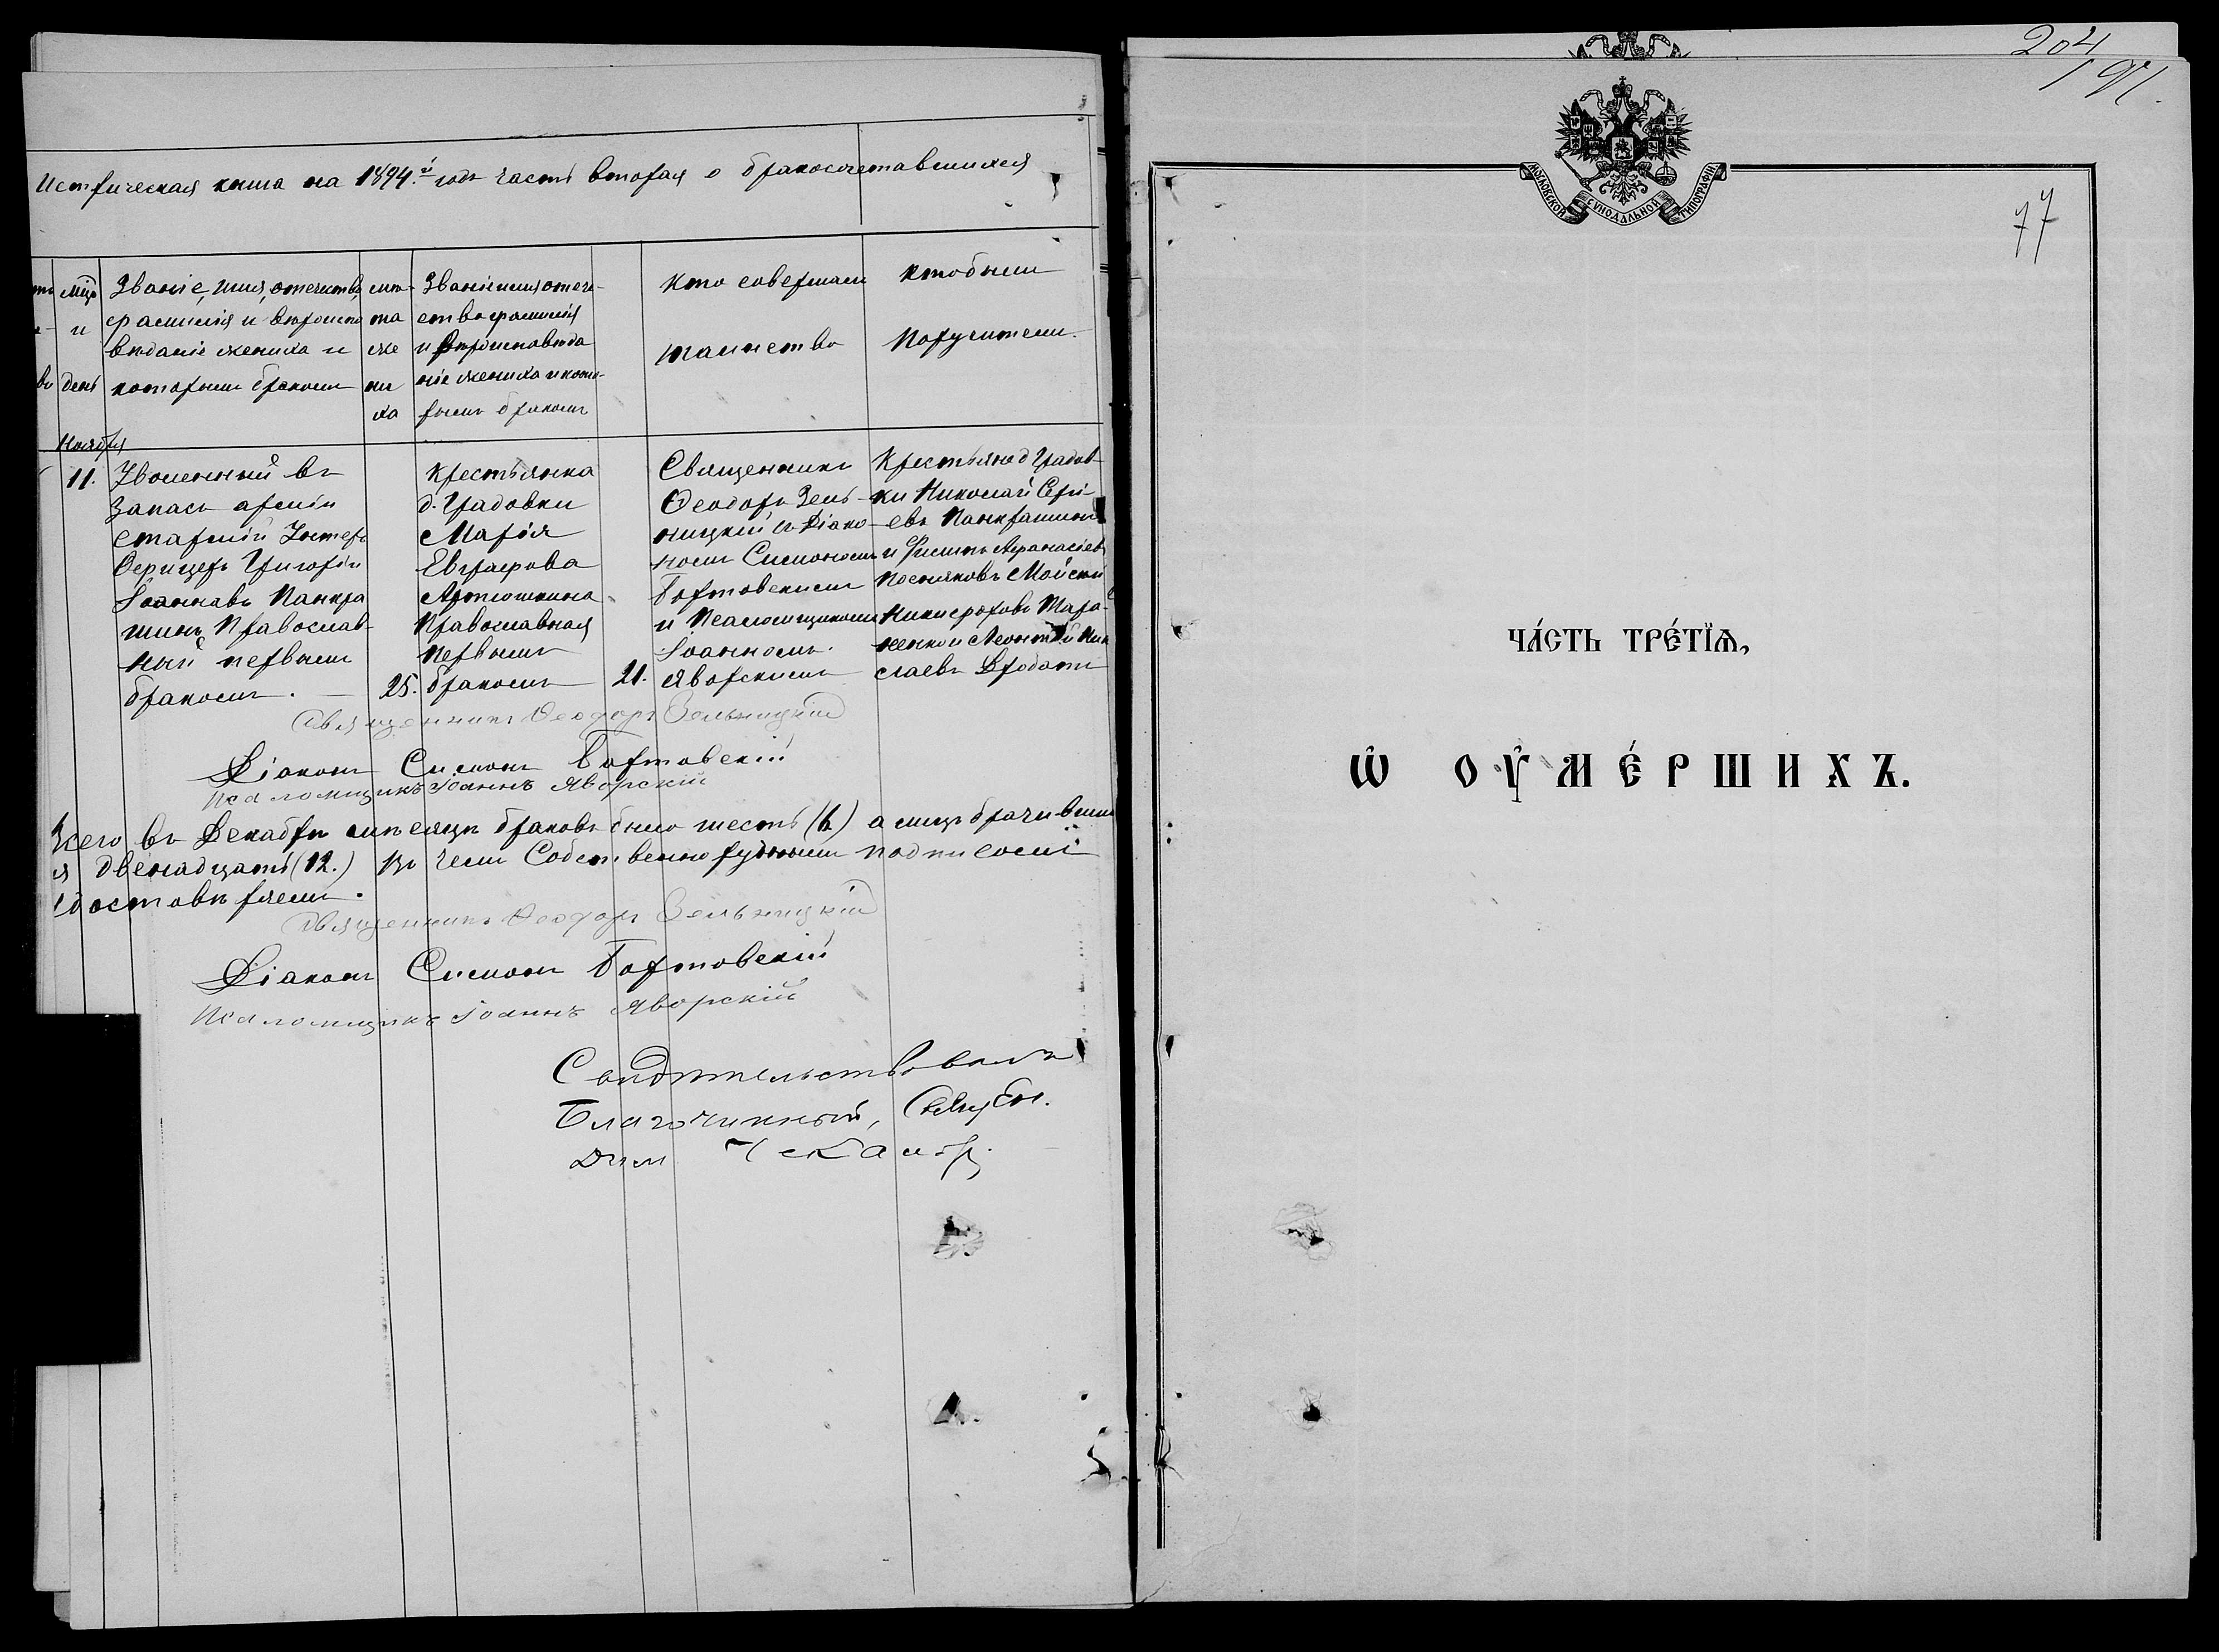 Истрическая книга на 1894.й годъ часть вторая о бракосочетавшихся
мцъ
и
день
Званіе, имя, отечество,
фамилія и вѣроиспо
вѣданіе жениха и
которымъ бракомъ
лѣ-
та
же
ни
ха
Званіе имя отече-
ство фамилія
и вѣроисповѣда
ніе жениха и кото-
рымъ бракомъ
Кто совершалъ
таинство
Кто были
Поручители.
Ноября
11.
Уволенный въ
Запасъ арміи
старшій Унтеръ
Офицеръ Григорій
Іоанновъ Панкра
шинъ, Православ-
ный первымъ
бракомъ. —
25.
Крестьянка
д. Градовки
Марія
Евграфова
Артюшкина
Православная
первымъ
бракомъ
21.
Священникъ
Ѳеодоръ Зель-
ницкій съ Діако-
номъ Симономъ
Бортовскимъ
и Псаломщикомъ
Іоанномъ.
Яворскимъ
Крестьяне д Градов-
ки Николай Сергі-
евъ Панкрашинъ
и Филипъ Афанасіевъ
Посняковъ Мойсей
Никифоровъ Тара-
ненко и Леонтій Ник
олаевъ Бродать
Священникъ Ѳеодоръ Зельницкій
Діаконъ Симонъ Бортовскій
Псаломщикъ Іоаннъ Яворскій
Всего въ Декабрѣ мѣсяцѣ браковъ было шесть (6) а лицъ брачивших
ся двенадцать (12.) Въ чемъ Собственноручнымъ подписомъ
удостовѣряемъ.
Священникъ Ѳеодоръ Зельницкій
Діаконъ Симонъ Бортовскій
Псаломщикъ Іоаннъ Яворскій
Свидѣтельствовалъ
Благочинный,
204
77
МОСКОВСКОЙ СѴНОДАЛЬНОЙ ТИПОГРАФІИ
ЧА́СТЬ ТРЕ́ТЇѦ,
Ѡ҆ ОУ҆МЕ́РШИХЪ.